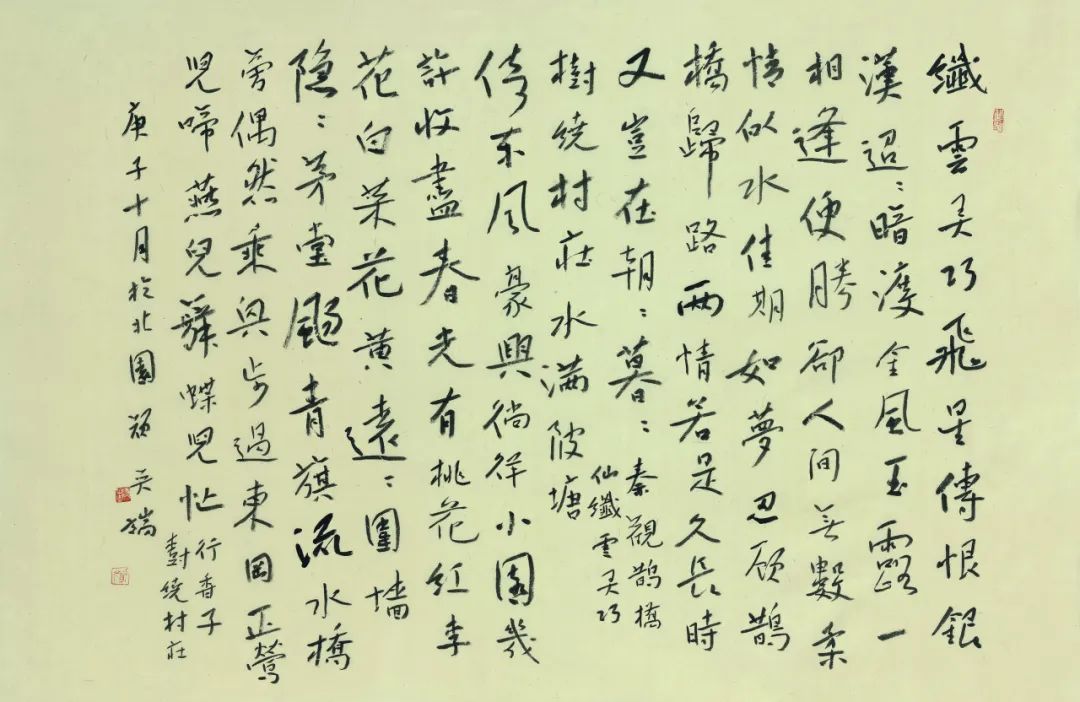 纖雲弄巧飛星傳恨銀
漢迢:暗渡金風玉露一
相逢便勝卻人間无數柔
情似水佳期如夢忍顧鵲
橋歸路兩情若是久長時
又豈在朝:暮:
秦觀鵲橋
仙纖雲弄巧
樹繞村莊水滿陂塘
倚東風豪興徜徉小園幾
許收盡春光有桃花紅李
花白菜花黃遠:圍墙
隐:茅堂颺青旗流水橋
旁偶然乘興步過東岡正鶯
兒啼燕兒舞蝶兒忙
行香子
樹繞村莊
庚子十月於北園